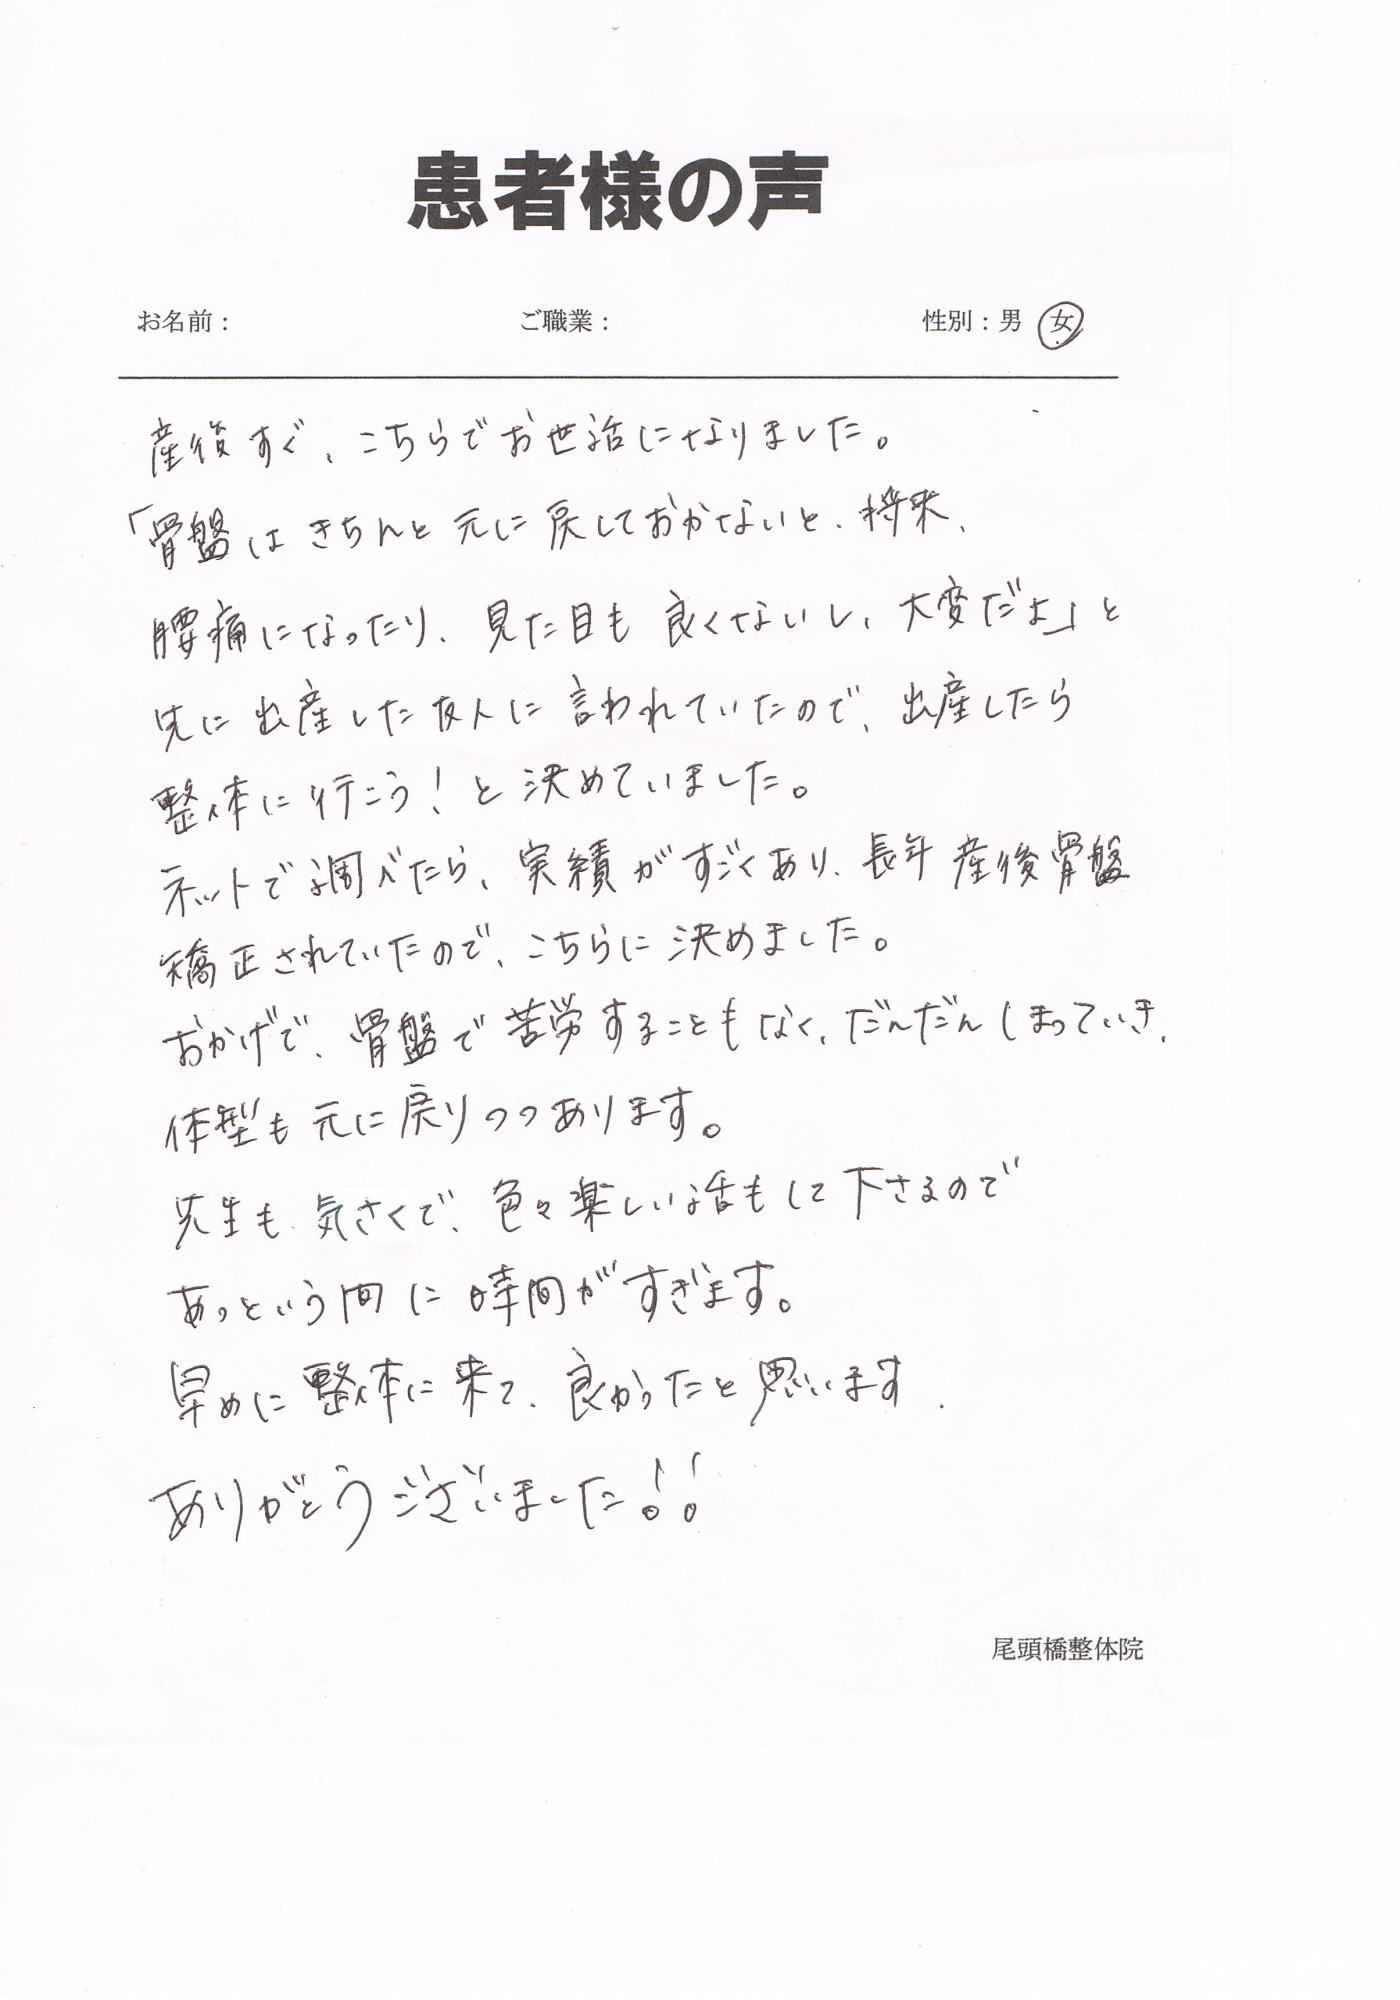 患者様の声
お名前： ご職業： 性別：男 女
産後すぐ、こちらでお世話になりました。
「骨盤はきちんと元に戻しておかないと、将来、
腰痛になったり、見た目も良くないし、大変だよ」と
先に出産した友人に言われていたので、出産したら
整体に行こう！と決めていました。
ネットで調べたら、実績がすごくあり、長年産後骨盤
矯正されていたので、こちらに決めました。
おかげで、骨盤で苦労することもなく、だんだんしまっていき、
体型も元に戻りつつあります。
先生も気さくで、色々楽しい話もして下さるので
あっという間に時間がすぎます。
早めに整体に来て、良かったと思います.
ありがとうございました！！
尾頭橋整体院